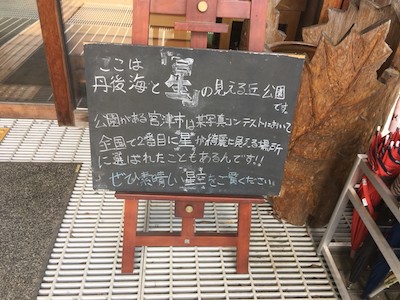 ここは
丹後海と星の見える丘公園
です。
公園がある宮津市は某写真コンテストにおいて
全国で2番目に星が綺麗に見える場所
に選ばれたこともあるんです!!
ぜひ素晴しい星空をご覧ください